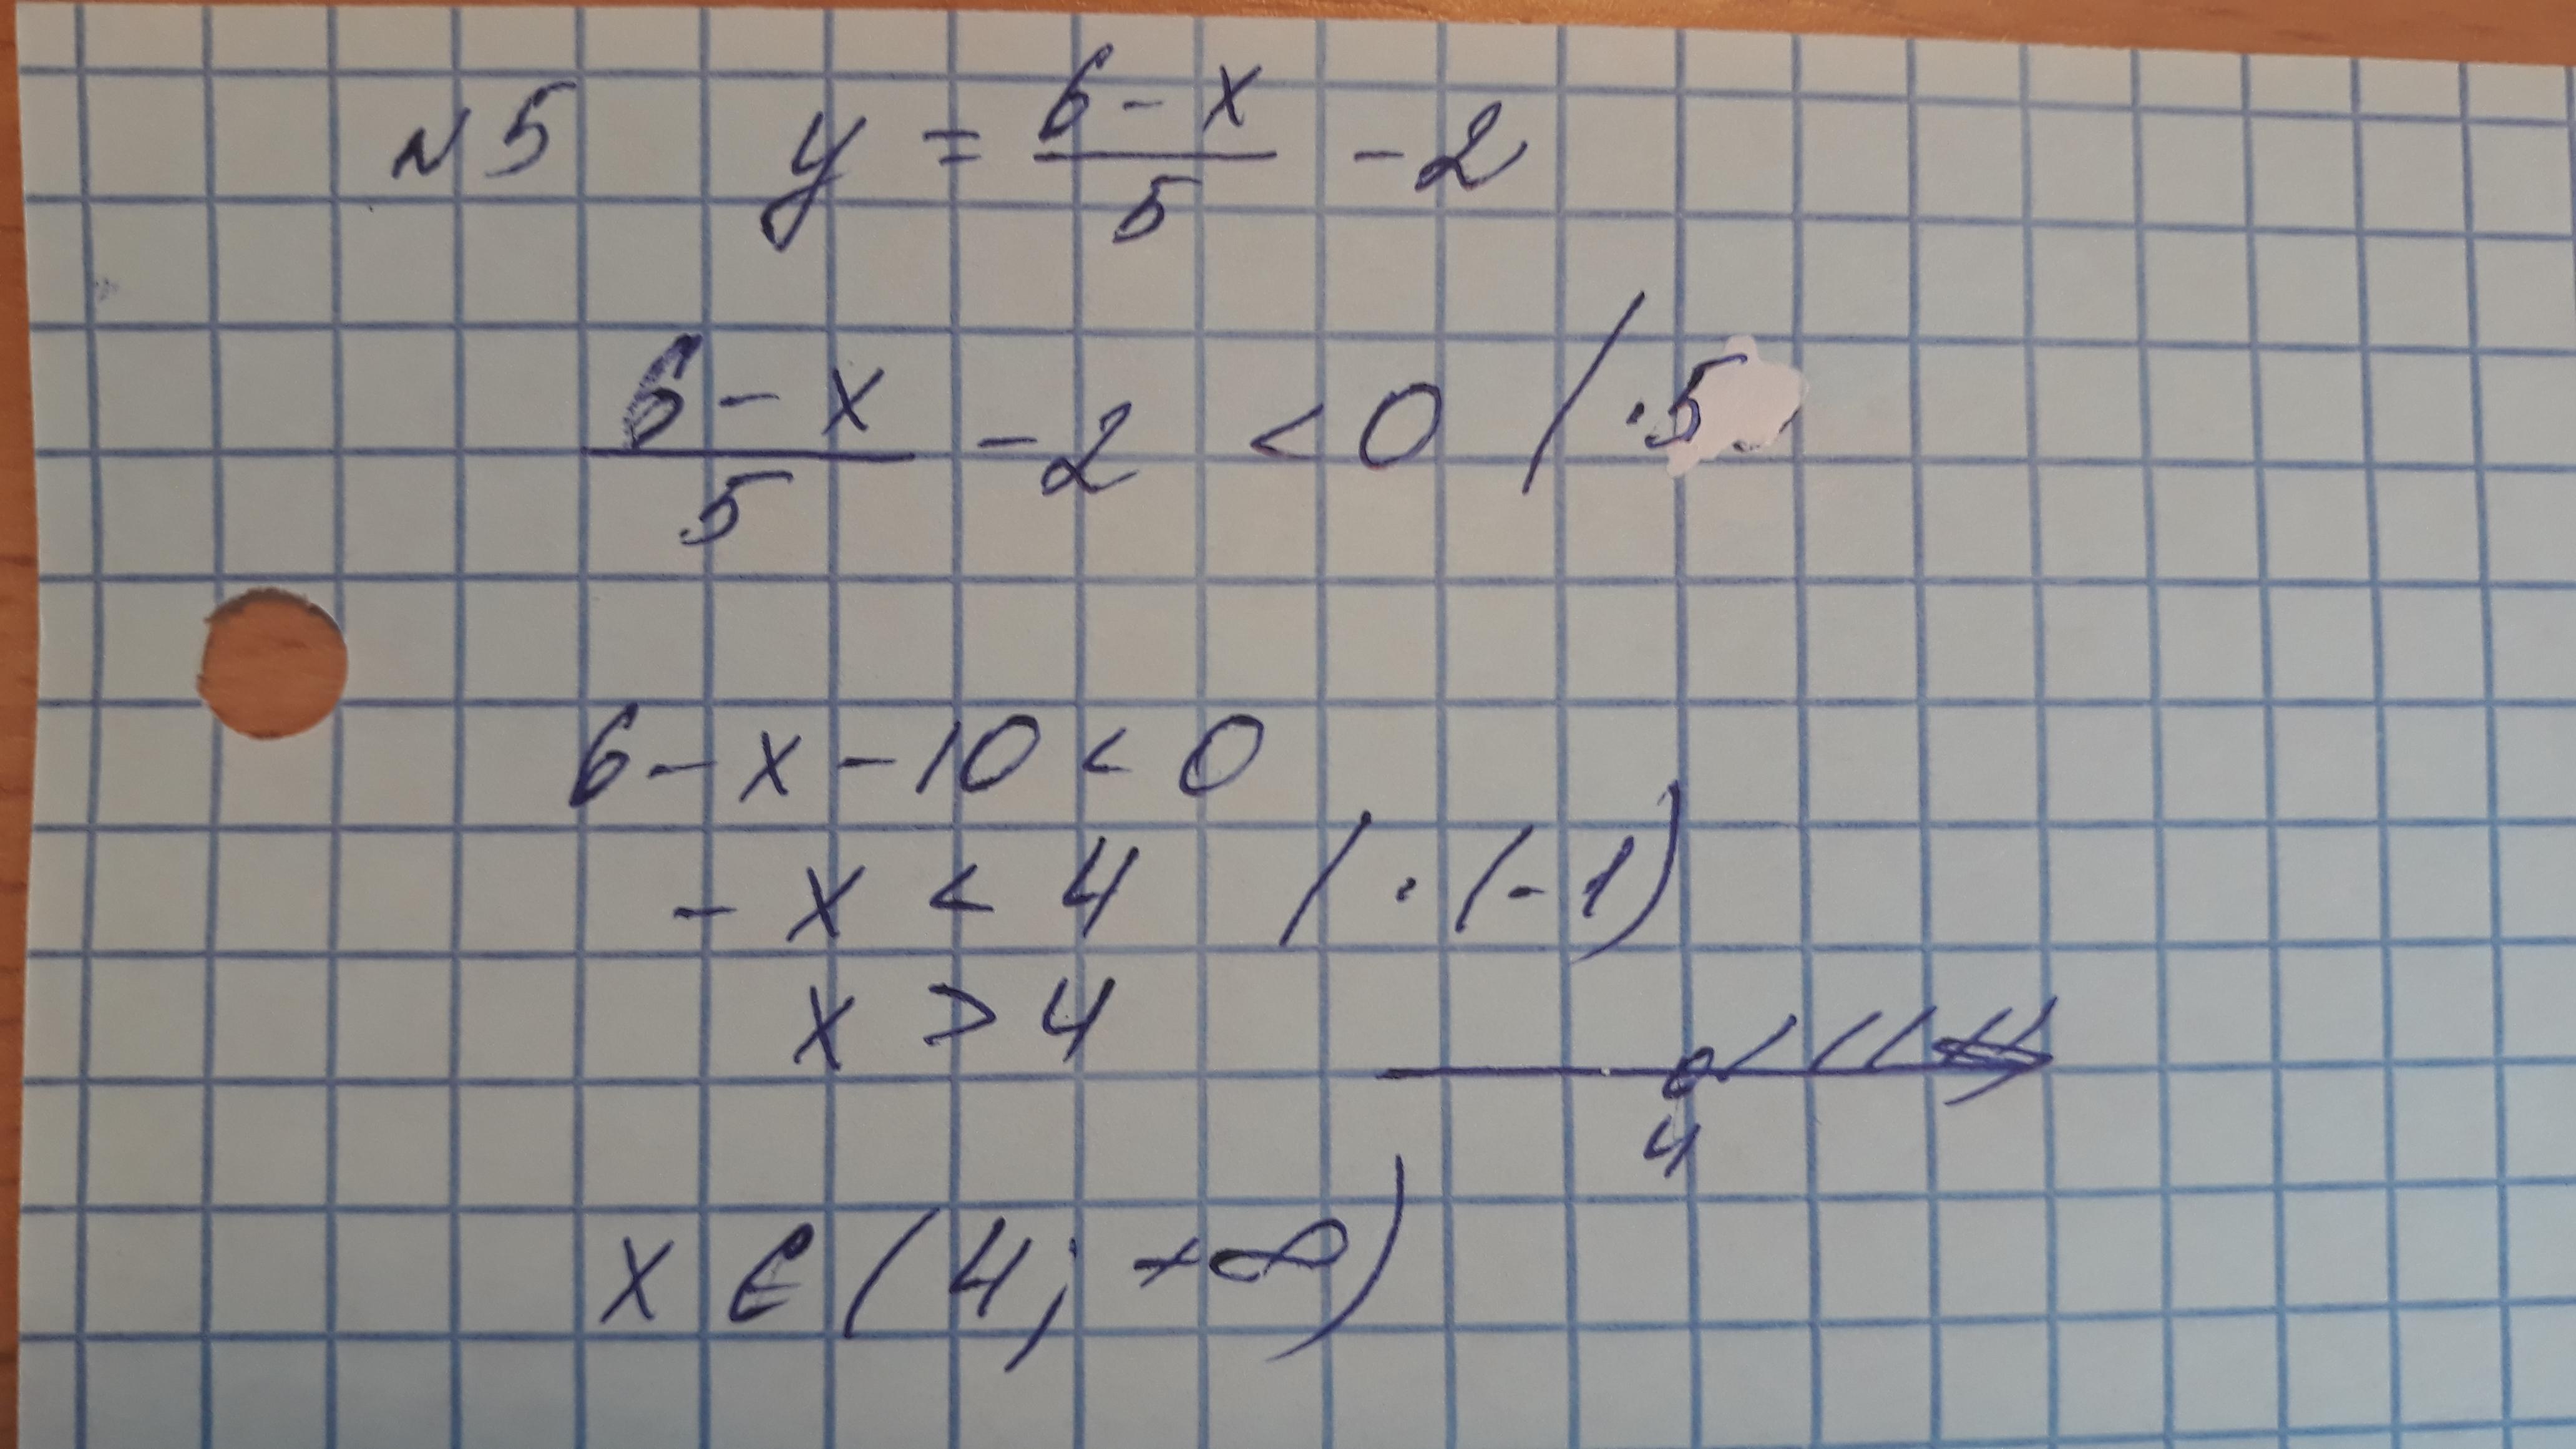 N5 y = \frac{6-x}{5} - 2
\frac{6-x}{5} - 2 < 0 / ·5
6 - x - 10 < 0
- x < 4 / · (-1)
x > 4
4
x ∈ (4; +∞)